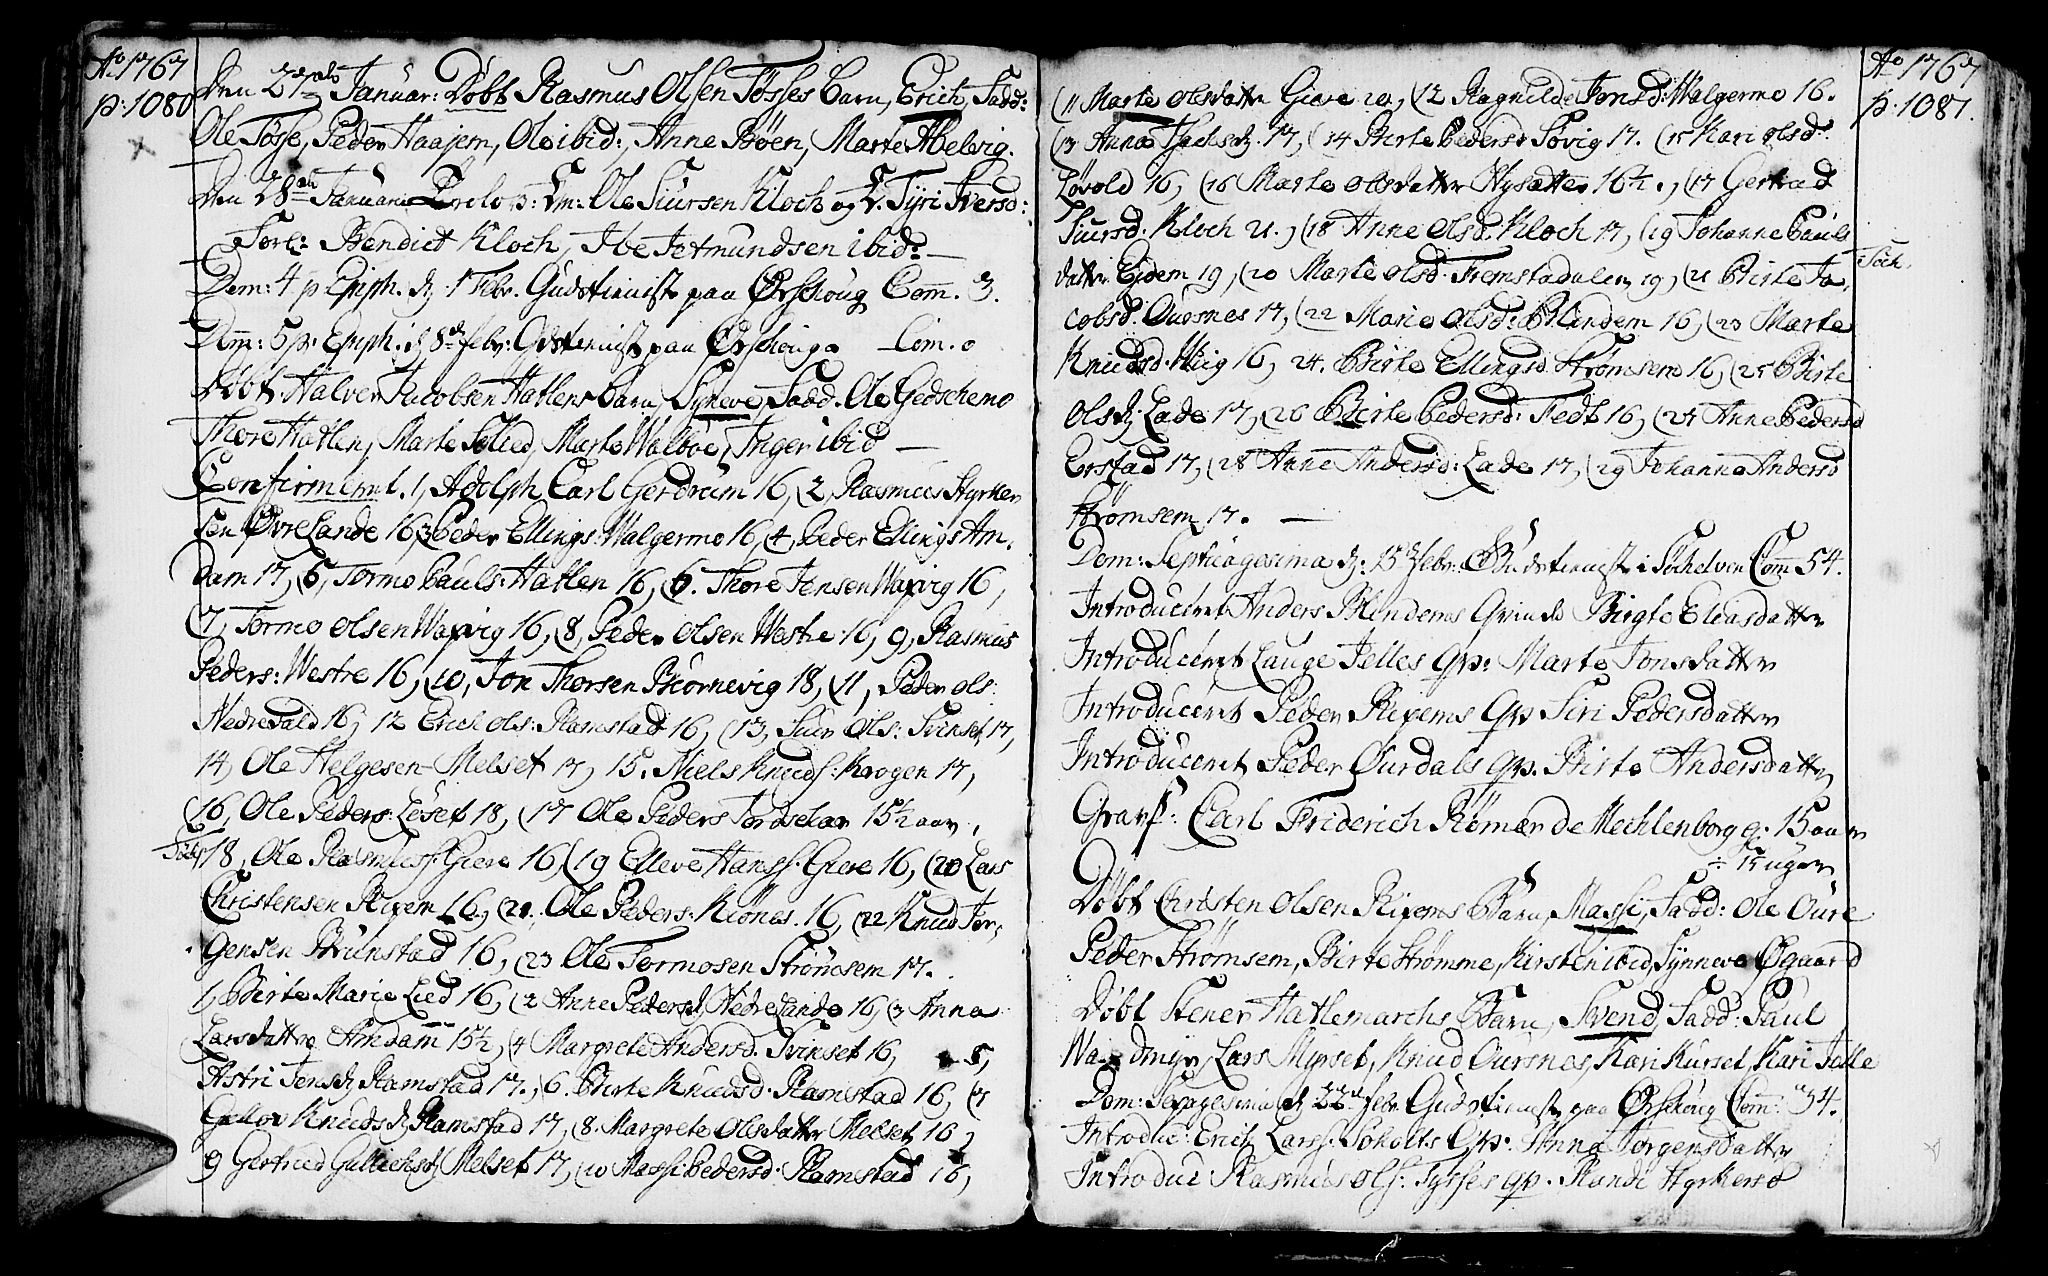 Ao 1767
p: 1080
Den 27de Januar: Døbt Rasmus Olsen Tøsses Barn, Erich, Fadd:
Ole Tøsse, Peder Haajem, Ole ibid:, Anne Bøen, Marte Abelvig.
Den 28de Januari Trolov: Em: Ole Siursen Kloch og P. Syri Iversd:
Forl: Bendict Kloch, Ibe Jetmundsen ibid:
Dom: 4 p Epiph. d. 1 Febr. Gudstienist paa Ørschoug Com. 3.
Dom: 5 p: Epiph. d 8de Febr: Gdstenist paa Ørschoug Com. 0
Døbt Halver Jacobsen Hatlens Barn, Syneve, Fadd. Ole Gedschemo
Thore Hatlen, Marte Solied, Marte Walbøe, Inger ibid
Confirmeret. 1, Adolph Carl Gerdrum 16, (2, Rasmus Styrker
sen Øvre Lande 16, 3 Peder Ellings: Walgermo 16, (4, Peder Ellings Am.
dam 17, (5, Tormo Pauls: Hatlen 16, (6. Thore Jensen Waxvig 16,
(7, Tormo Olsen Waxvig 16, (8, Peder Olsen Westre 16, 9, Rasmus
Peders: Westre 16, (10, Jon Thorsen Biørnevig 18, (11, Peder Ols:
Nedrevald 16, 12 Erich Ols: Ramstad 16, (13, Siur Ols: Svinset 17,
14, Ole Helgesen Melset 17, 15. Niels Knuds: Krogen 17,
(16, Ole Peders: Løset 18, (17 Ole Peders Tordselav 15½ aar,
Søk: 18, Ole Rasmuss: Giere 16, (19 Elleve Hanss: Giere 16, (20 Lars
Christensen Rixem 16, (21. Ole Peders: Kiønes. 16, (22 Knud Jør,
gensen Brunstad 16, (23 Ole Tormosen Strømsem 17.
1, Birte Marie Lied 16, (2 Anne Pedersd, Nedre Lande 16, (3 Anna
Larsdatter Amdam 15½, (4 Margrete Andersd. Svinset 16, 5,
Astri Jensd. Ramstad 17., (6. Birte Knudsd. Ramstad 16, (7
Knudsd. Ramstad 17, (8. Margrete Olsdatter Melset 16,
9 Giertrud Gullichsd. Melset 17, (10 Massi Pedersd: Ramstad 16,
Ao 1767
p. 1081.
(11 Marte Olsdattr Giere 20, (12 Ragnilde Jonsd: Walgermo 16.
(13 Anna Isachsd. 17, (14 Birte Pedersd Søvig 17. (15 Kari Olsd:
Løvold 16, (16 Marte Olsdattr Nysætter 16½., (17 Gertrud
Siursd. Kloch 21., (18 Anne Olsd. Kloch 17, (19 Johanne Pauls
dattr Eidem 19, (20 Marte Olsd. Fremstedalen 19, (21 Birte Ja, Søk.
cobsd. Oursnes 17, (22 Marie Olsd: Blindem 16, (23 Marte
Knudsd. Wiig 16, 24. Birte Ellingsd. Strømsem 16, (25 Birte
Olsd; Lade 17, (26 Birte Pedersd: Tedt 16, (27 Anne Pedersd
Erstad 17, (28 Anne Andersd: Lade 17, (29 Johanne Andersd
Strømsem 17.
Dom: Septuagesima d: 15de Febr: Gudstienist i Søckelven Com 54.
Introduceret Anders Blindems Qvinde Birgte Eliasdatter
Introduceret Lauge Jelles Qv: Marte Jonsdatter
Introduceret Peder Rixems Qv Siri Pedersdatter
Introduceret Peder Ourdals qv. Birte Andersdatter
Grafs: Carl Friderich Rømer de Mechlenborg g: 15 aar
÷ 15 uger
Døbt Christen Olsen Rixems Barn, Massi, Fadd: Ole Oure
Peder Strømsem, Birte Strømme, Kirsten ibid, Synneve Øgaard
Døbt Stener Hatlemarchs Barn, Svend, Fadd: Paul
Lars Myrset, Knud Oursnes, Kari Kurset, Kari Jelle
Dom: Sexagesima d 22d Febr Gudstienist paa Ørschoug Com: 34.
Introduc: Erich Larss: Soholts Qv: Anna Jørgensdatter
Introduc Rasmus Ols: Tysses qv. Rande Styrkersd